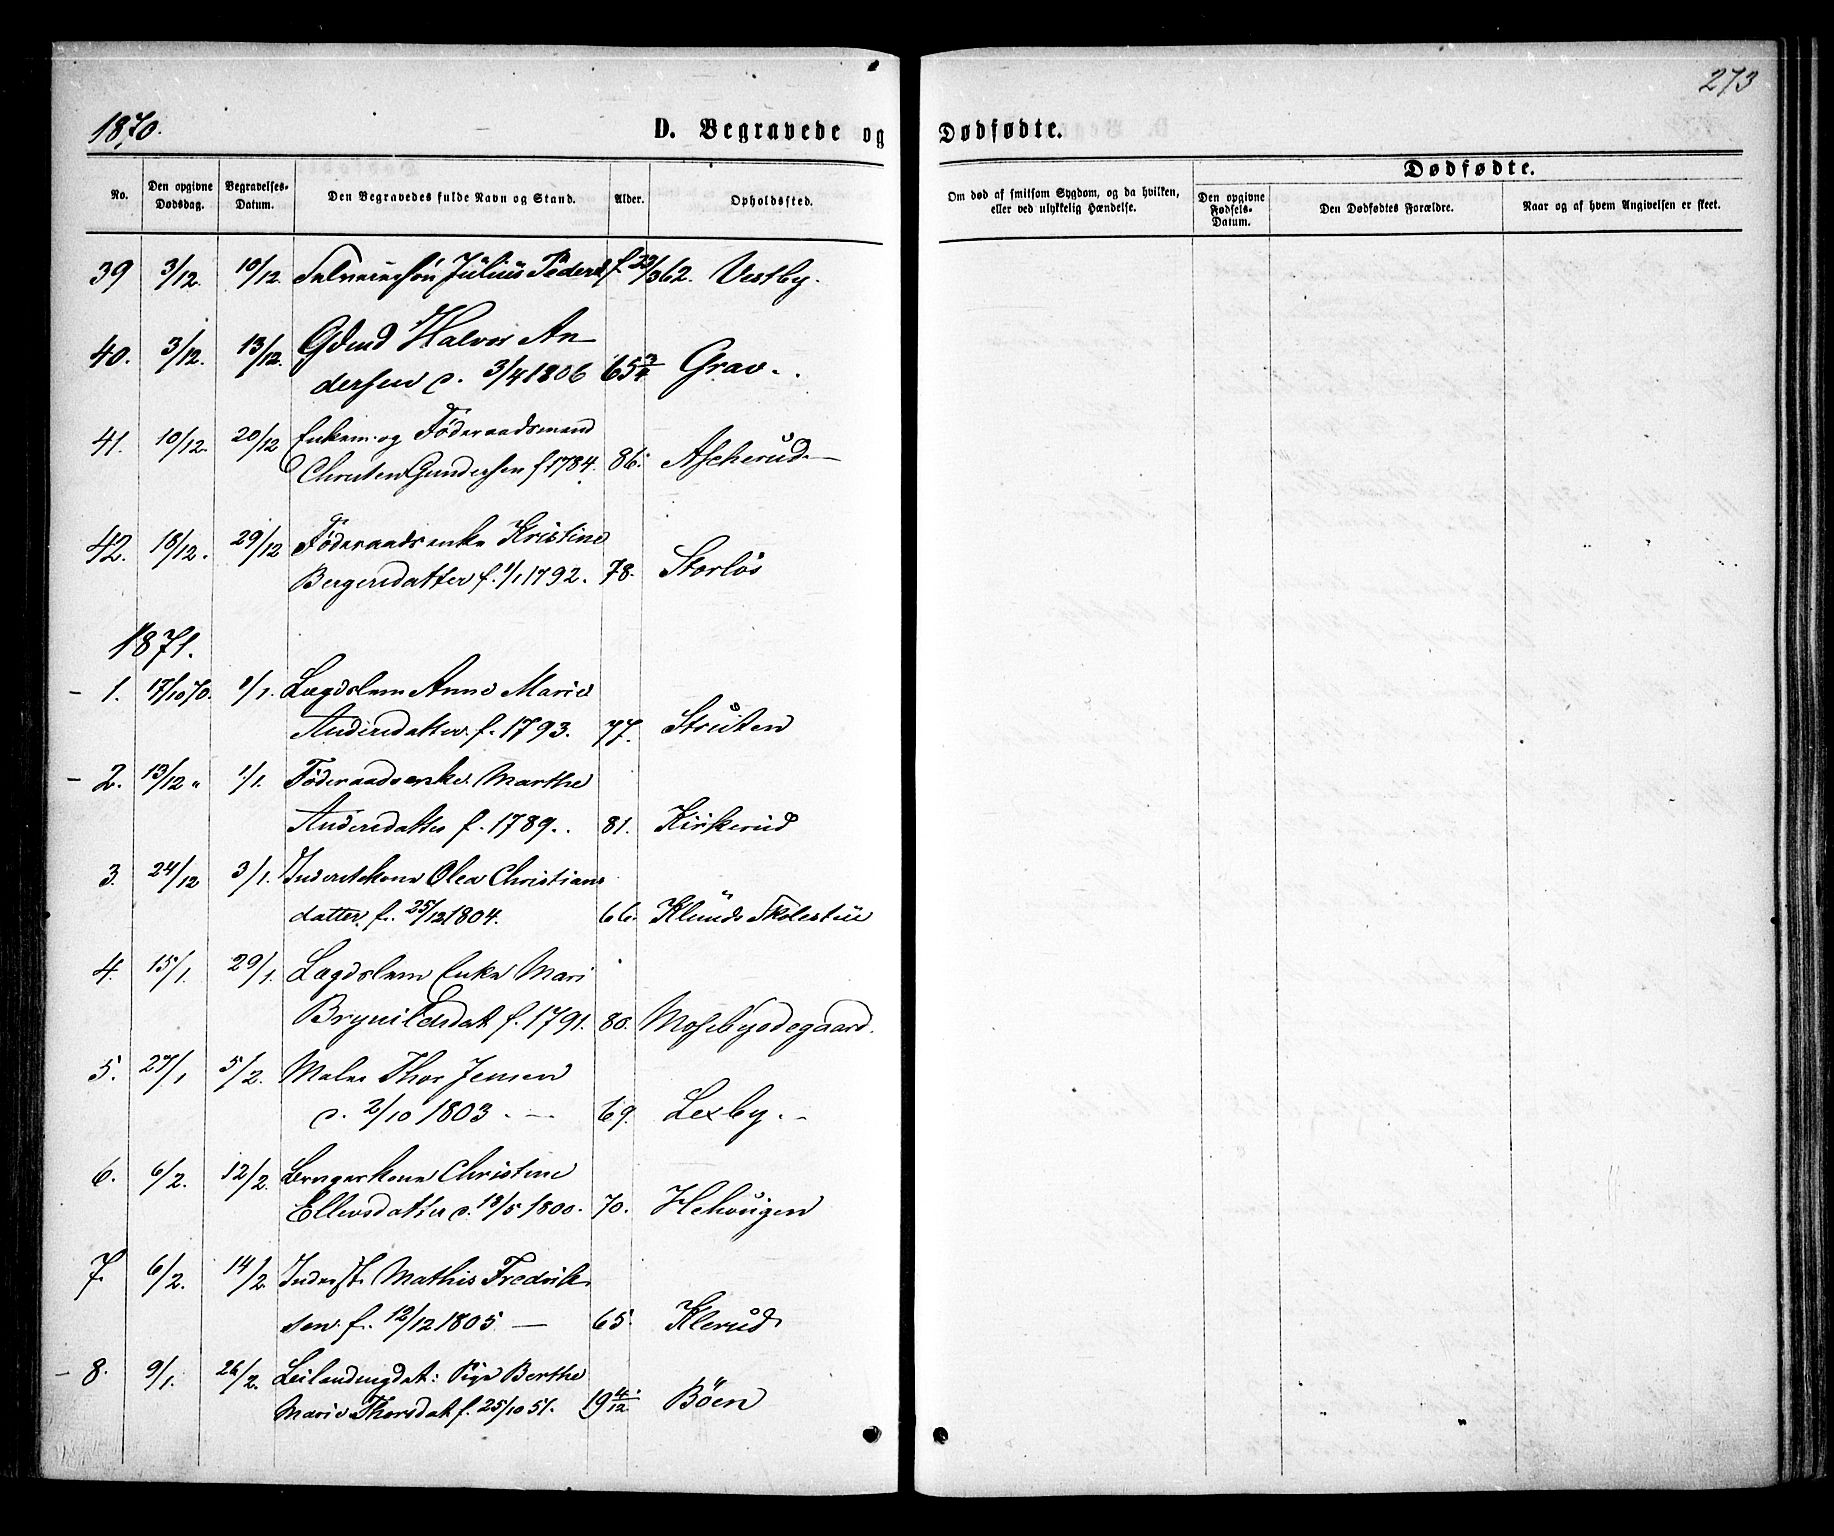 273
1870.
D. Begravede og Dødfødte.
No.
Den opgivne Dødsdag.
Begravelses-Datum.
Den Begravedes fulde Navn og Stand.
Alder.
Opholdssted.
Om død af smitsom Sygdom, og da hvilken, eller ved ulykkelig Hændelse.
Dødfødte.
Den opgivne Fødsels-Datum.
Den Dødfødtes Forældre.
Naar og af hvem Angivelsen er skeet.
39 3/12. 10/12. Julius Peders f. 29/3 62. Vestby.
40. 3/12. 13/12. Gdmd Halvor An
dersen d. 3/4 1806 65 Grav.
41. 10/12. 20/12 Enkem. og Föderaadsmand
Christen Gundersen f 1784. 86. Ascherud
42. 18/12. 29/12 Föderaadsenke Kristine
Bergersdatter f. 1/1 1792. 78. Storlös
1871.
- 1. 17/10 70. 1/1. Lægdslem Anne Marie
Andersdatter f. 1793. 77. Struten
- 2. 13/12 " 1/1. Föderaadsenke Marthe
Andersdatter f. 1789. 81. Kirkerud
3. 24/12 3/1. Inderstekone Olea Christians
datter f. 25/12 1804. 66. Klunds Skolestue
4. 15/1. 29/1. Lægdslem Enke Mari
Brynildsdat f. 1791. 80. Mosebyødegaard.
5. 27/1 5/2. Maler Thor Jensen
d. 2/10 1803. — 69. Lexby. -
6. 6/2. 12/2. Brugerkone Christine
Ellevsdatter d. 13/5 1800. 70.
7. 6/2. 14/2. Inderst. Mathis Fredrik
sen f. 12/12 1805 — 65. Klerud
- 8. 9/1. 26/2. Leilændingdat: Pige Berthe
Marie Thorsdat f. 25/10 51. 19 4/12 Böen